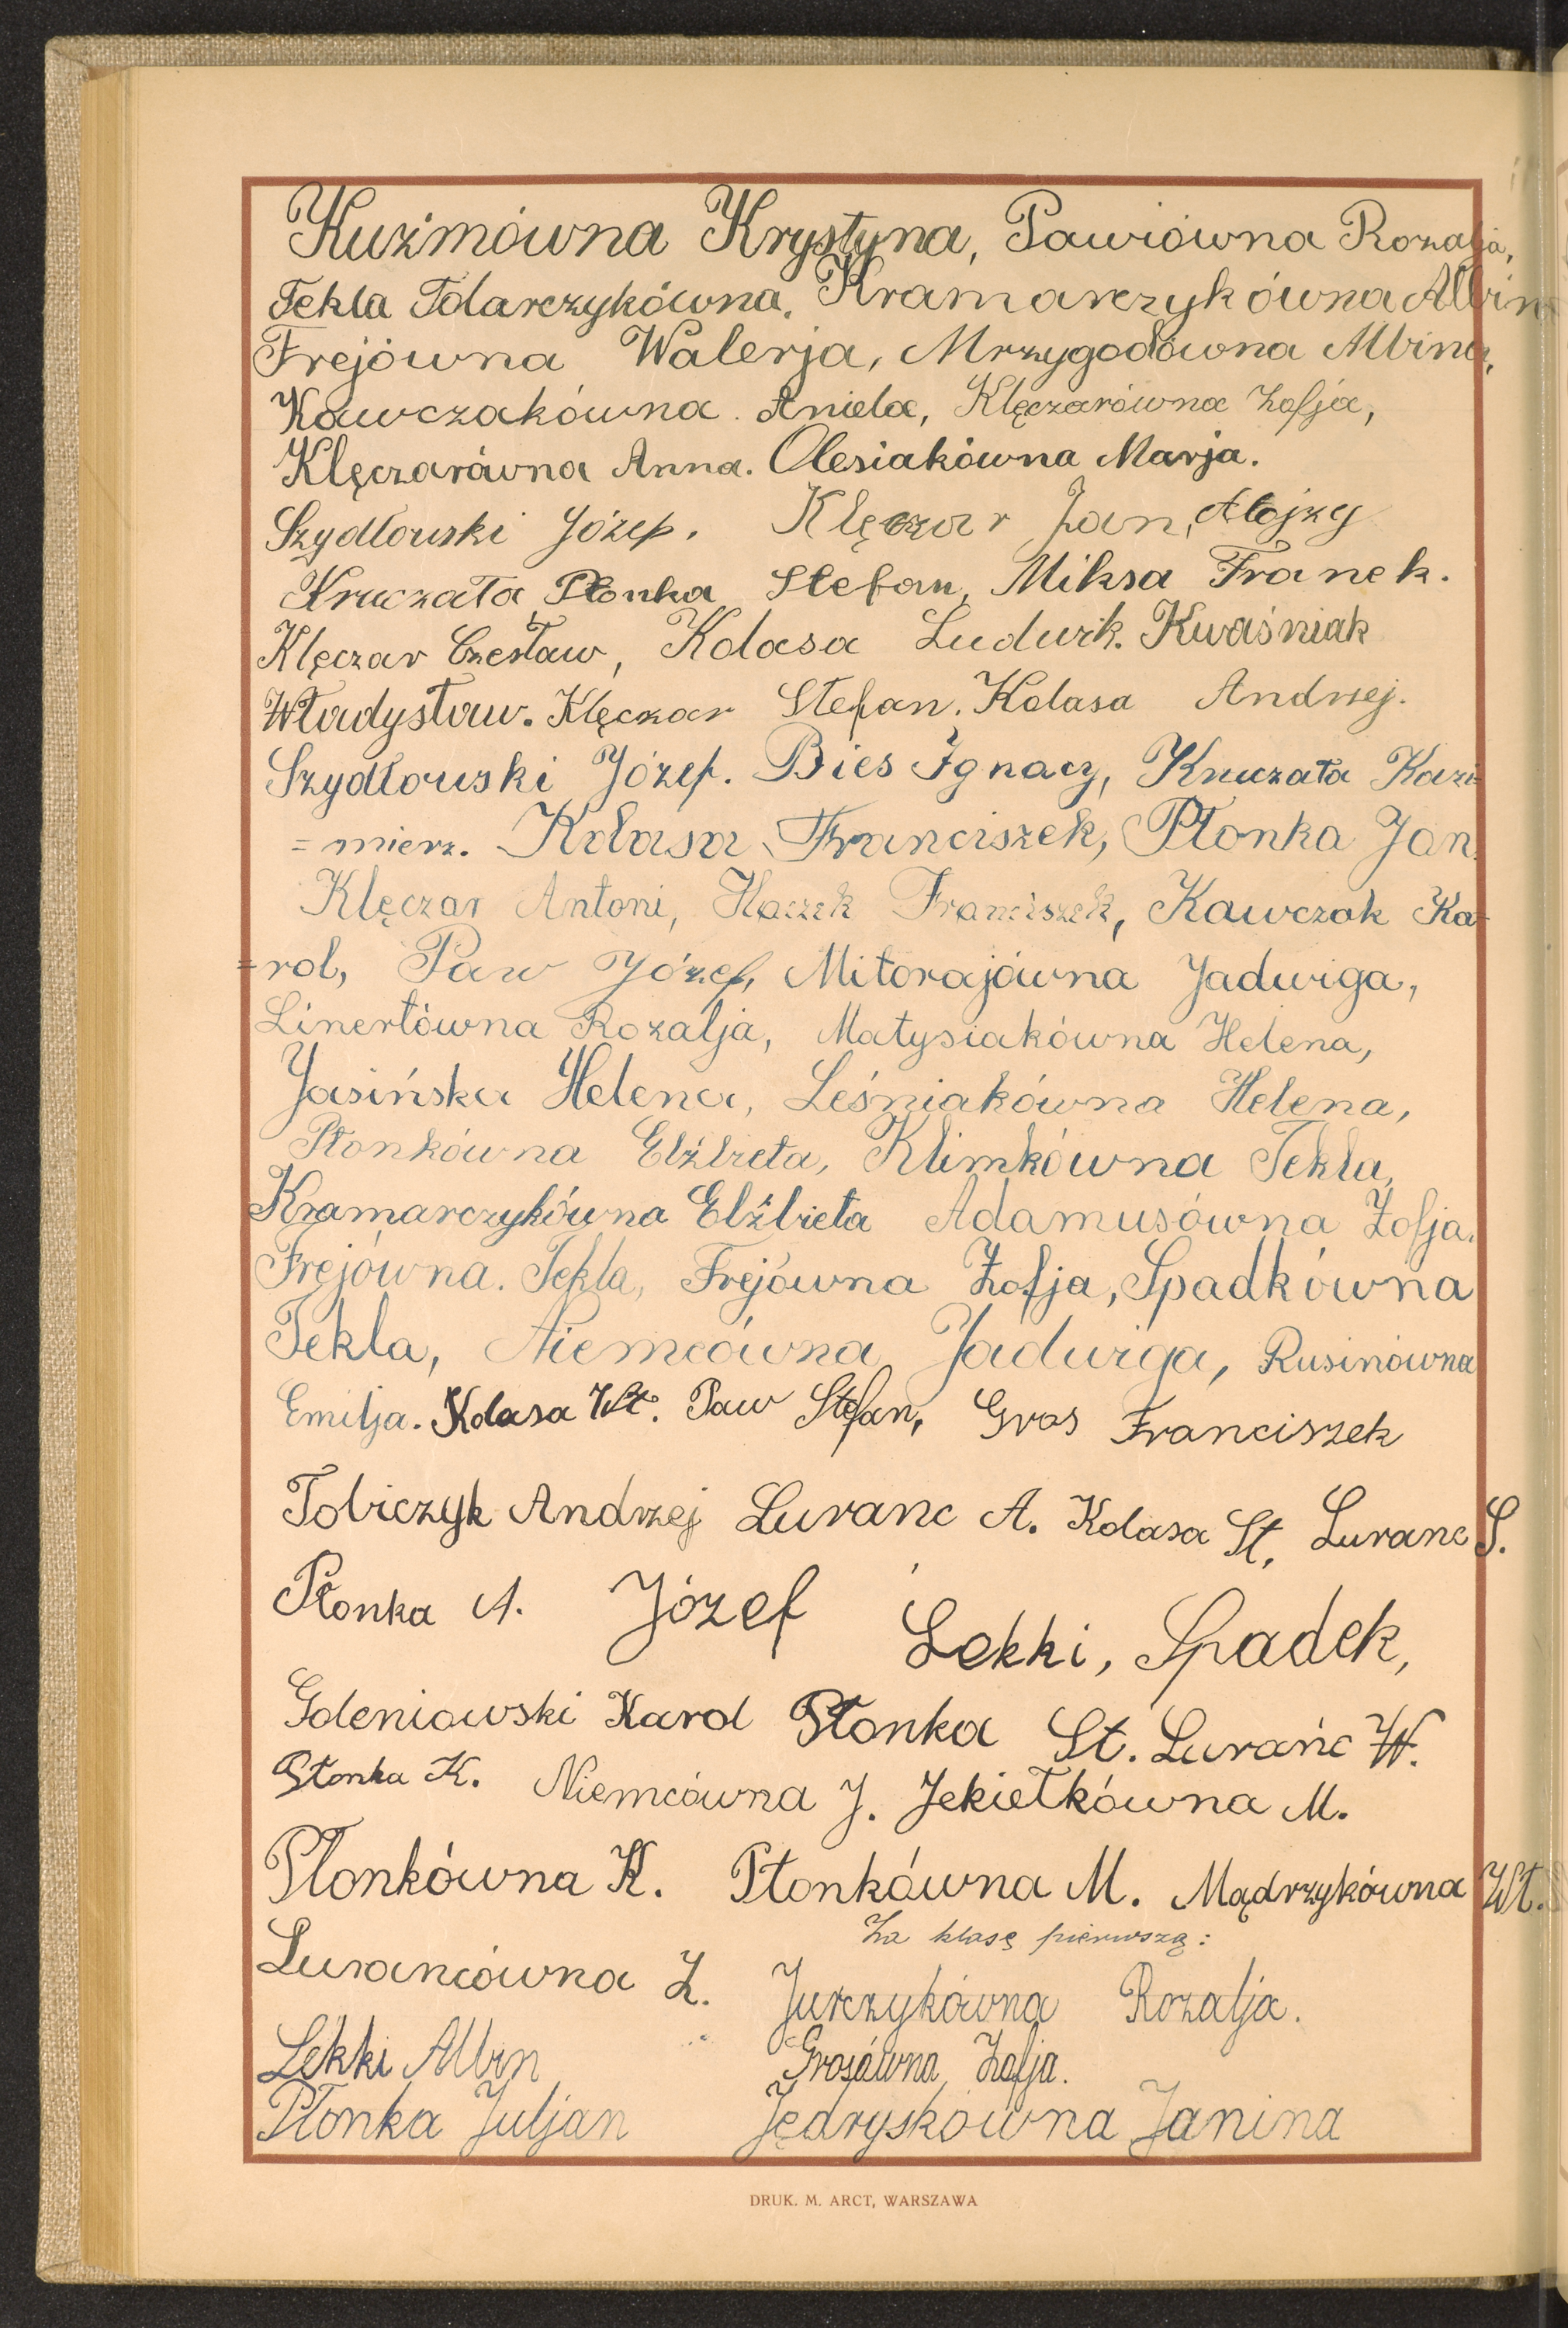 Kuźmówna Krystyna, Pawiówna Rozalja,
Tekla Tolarczykówna. Kramarczykówna Albin
Frejówna Walerja, Mrzygodówna Albina,
Kawczakówna Aniela, Klęczarówna Zofja,
Klęczarówna Anna. Olesiakówna Marja.
Szydłowski Józef. Klęczar Jan, Alojzy
Kruczała Płonka Stefan, Miksa Franek.
Klęczar Czesław, Kolasa Ludwik. Kwaśniak
Władysław. Klęczar Stefan. Kolasa Andrzej.
Szydłowski Józef. Bies Ignacy, Kruczała Kazi=
=mierz. Kolasa Franciszek, Płonka Jan.
Klęczar Antoni, Haczek Franciszek, Kawczak Ka=
=rol, Paw Józef, Mitorajówna Jadwiga,
Linertówna Rozalja, Matysiakówna Helena,
Jasińska Helena, Leśniakówna Helena,
Płonkówna Elżbieta, Klimkówna Tekla,
Kramarczykówna Elżbieta Adamusówna Zofja.
Frejówna. Tekla, Frejówna Zofja, Spadkówna
Tekla, Niemcówna Jadwiga, Rusinówna
Emilja. Kolasa Wł. Paw Stefan, Gros Franciszek
Tobiczyk Andrzej Luranc A. Kolasa St. Luranc S.
Płonka A. Józef Lekki, Spadek,
Goleniowski Karol Płonka St. Lurańc W.
Płonka K. Niemcówna J. Jekiełkówna M.
Płonkówna K. Płonkówna M. Mądrzykówna Wł.
Za klasę pierwszą:
Lurancówna Z. Jurczykówna Rozalja.
Lekki Albin Grosówna Zofja.
Płonka Juljan Jędryskówna Janina
DRUK. M. ARCT, WARSZAWA